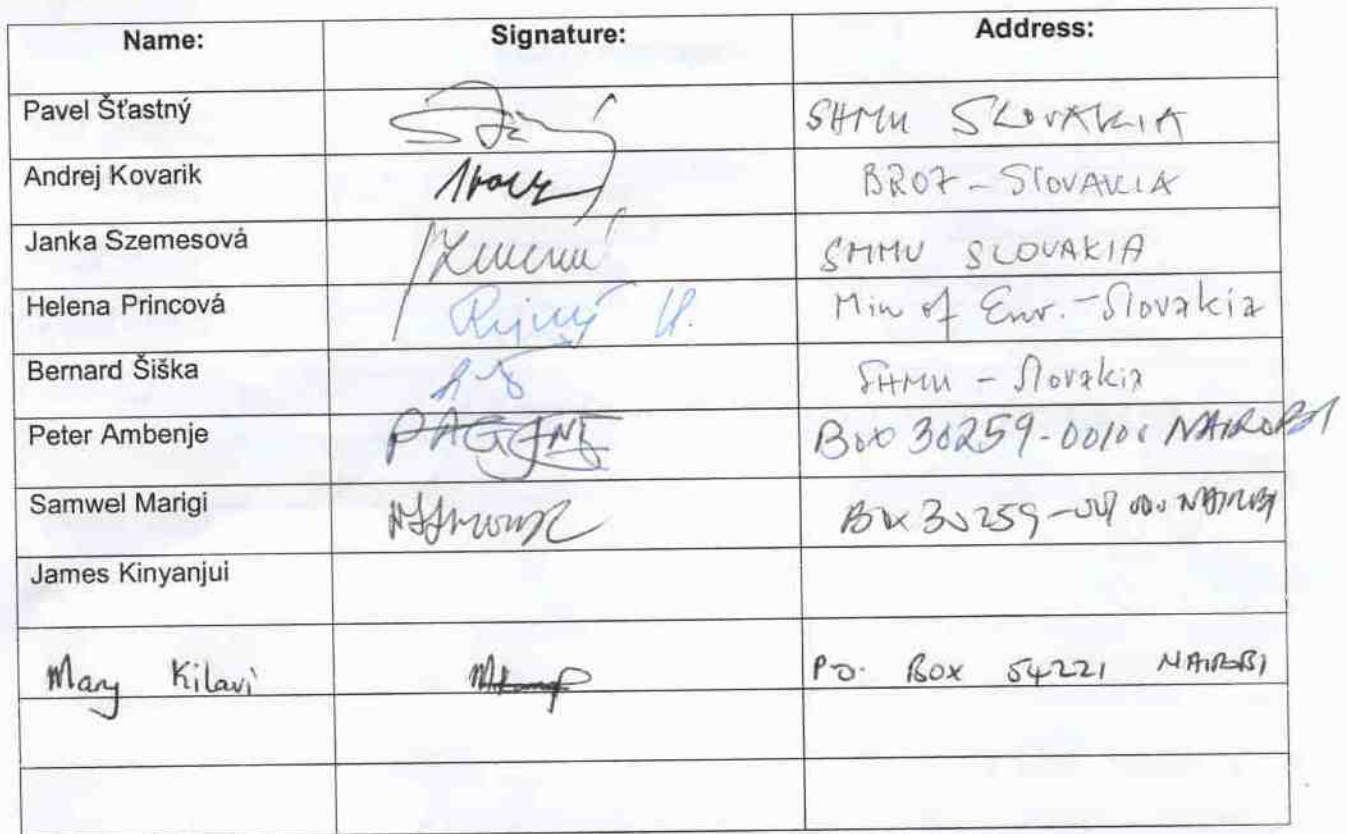 Name: Signature: Address:
Pavel Šťastný SHMU SLOVAKIA
Andrej Kovarik SLOVAKIA
Janka Szemesová SHMU SLOVAKIA
Helena Princová Min of Env. - Slovakia
Bernard Šiška SHMU - Slovakia
Peter Ambenje Box 30259-00100 NAIROBI
Samwel Marigi Box 30259 NAIROBI
James Kinyanjui
Mary Kilavi P.O. Box 54221 NAIROBI